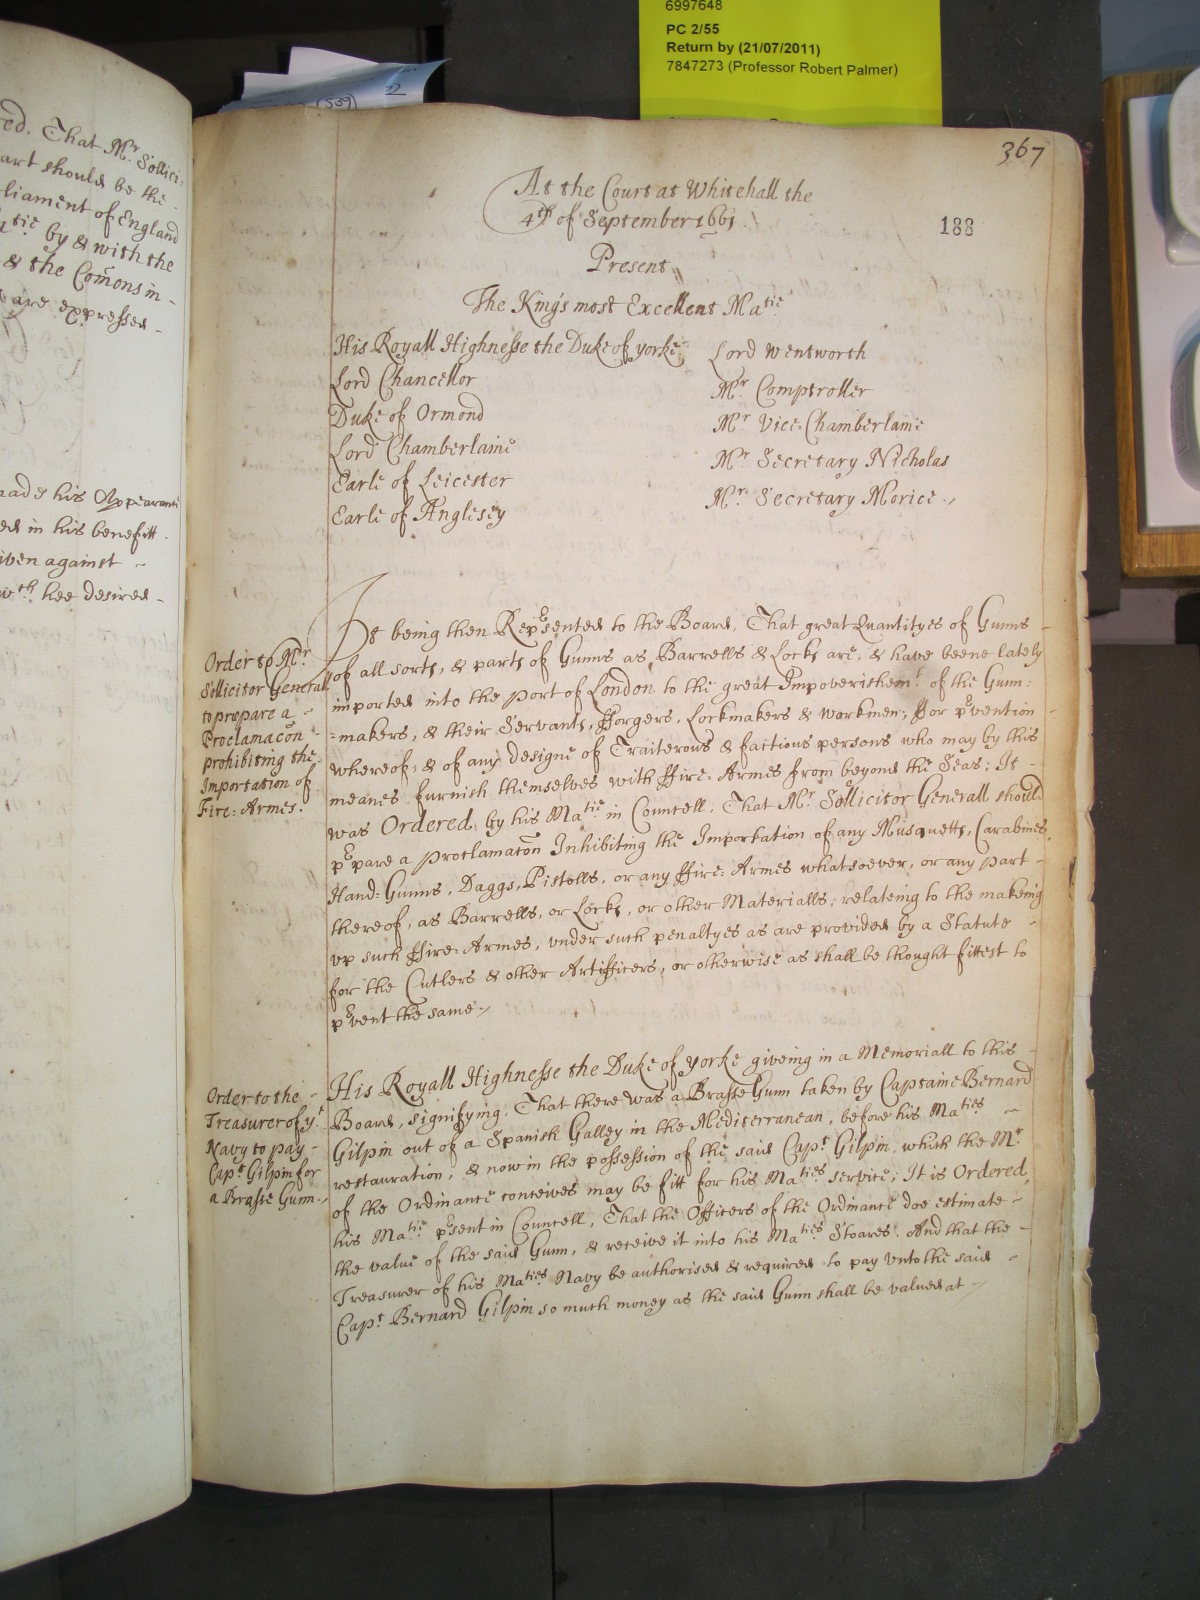 6997648
PC 2/55
Return by (21/07/2011)
7847273 (Professor Robert Palmer)
(539)
ed. That Mr Sollici-
art should be the
liament of England
atie by & with the
& the Com̃ons in -
are expressed -
made his Appearance
ed in his benefitt -
iven against -
wth hee desired -
367
188
At the Court at Whitehall the
4th of September 1661
Present
The Kings most Excellent Matie
His Royall Highnesse the Duke of yorke
Lord Chancellor
Duke of Ormond
Lord Chamberlaine
Earle of Leicester
Earle of Anglesey
Lord Wentworth
Mr Comptroller
Mr Vice-Chamberlaine
Mr Secretary Nicholas
Mr Secretary Morice
Order to Mr
Sollicitor Generall
to prepare a -
Proclamac̃on -
prohibiting the
Importation of
Fire-Armes.
It being then Repesented to the Board, That great Quantityes of Gunns -
of all sorts, & parts of Gunns as, Barrells & Locks are, & have beene lately
imported into the Port of London to the great Impoverishemt of the Gunn-
-makers, & their Servants, fforgers, Lockmakers & workmen, ffor pevention -
whereof, & of any designe of Traiterous & factious persons who may by this
meanes furnish themselves with ffire-Armes from beyond the Seas; It -
was Ordered by his Matie in Councell, That Mr Sollicitor Generall should
pepare a Proclamac̃on Inhibiting the Importation of any Musquetts, Carabines,
Hand-Gunns, Daggs, Pistolls, or any ffire-Armes whatsoever, or any part -
thereof, as Barrells, or Locks, or other Materialls, relateing to the makeing
vp such ffire-Armes, vnder such penaltyes as are provided by a Statute -
for the Cutlers & other Artifficers, or otherwise as shall be thought fittest to
pevent the same
Order to the -
Treasurer of yt
Navy to pay -
Capt Gilpin for
a Brasse Gunn -
His Royall Highnesse the Duke of yorke giveing in a Memoriall to this
Board, signifying, That there was a Brasse Gunn taken by Captaine Bernard
Gilpin out of a Spanish Galley in the Mediterranean, before his Maties -
restauration, & now in the possession of the said Capt Gilpin, which the Mr
of the Ordinance conceives may be fitt for his Maties service; It is Ordered,
his Matie pesent in Councell, That the Officers of the Ordinance doe estimate -
the value of the said Gunn, & receive it into his Maties Stoares. And that the -
Treasurer of his Maties Navy be authorised & required to pay vnto the said -
Capt Bernard Gilpin so much money as the said Gunn shall be valued at -